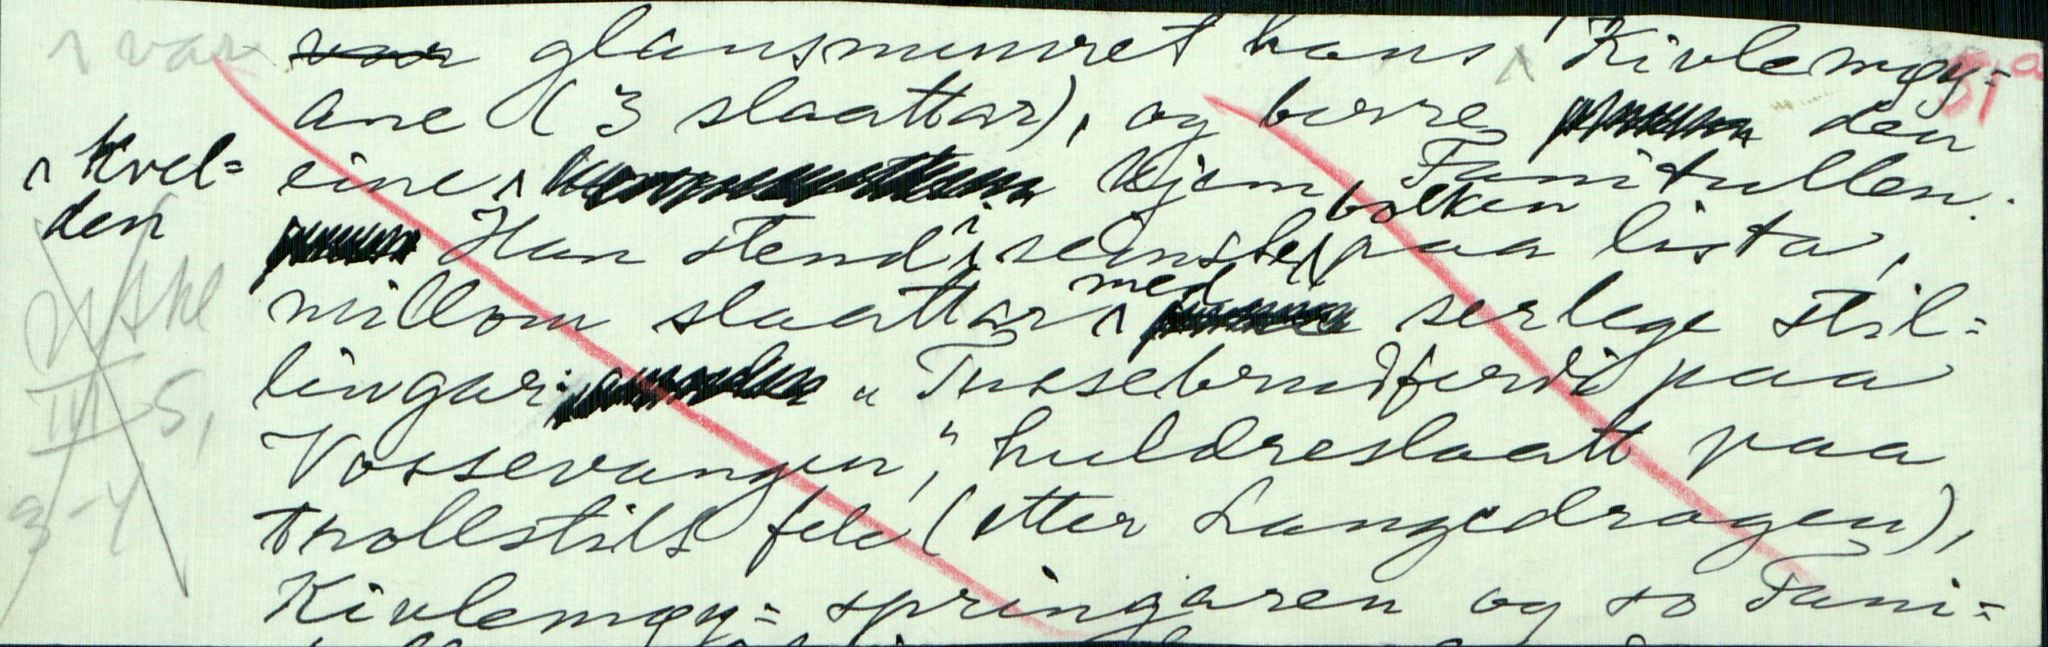 var glansnumret hans Kivlemøy=
ane (3 slaattar), og berre den
eine kvel=
den kjem Fanitullen.
Han stend i seinste bolken paa lista,
millom slaattar med serlege stil=
lingar: "Tussebrudferdi paa
Vossevangen," huldreslaatt paa
trollstilt fele (etter Langedragen),
Kivlemøy=springaren og so Fani=